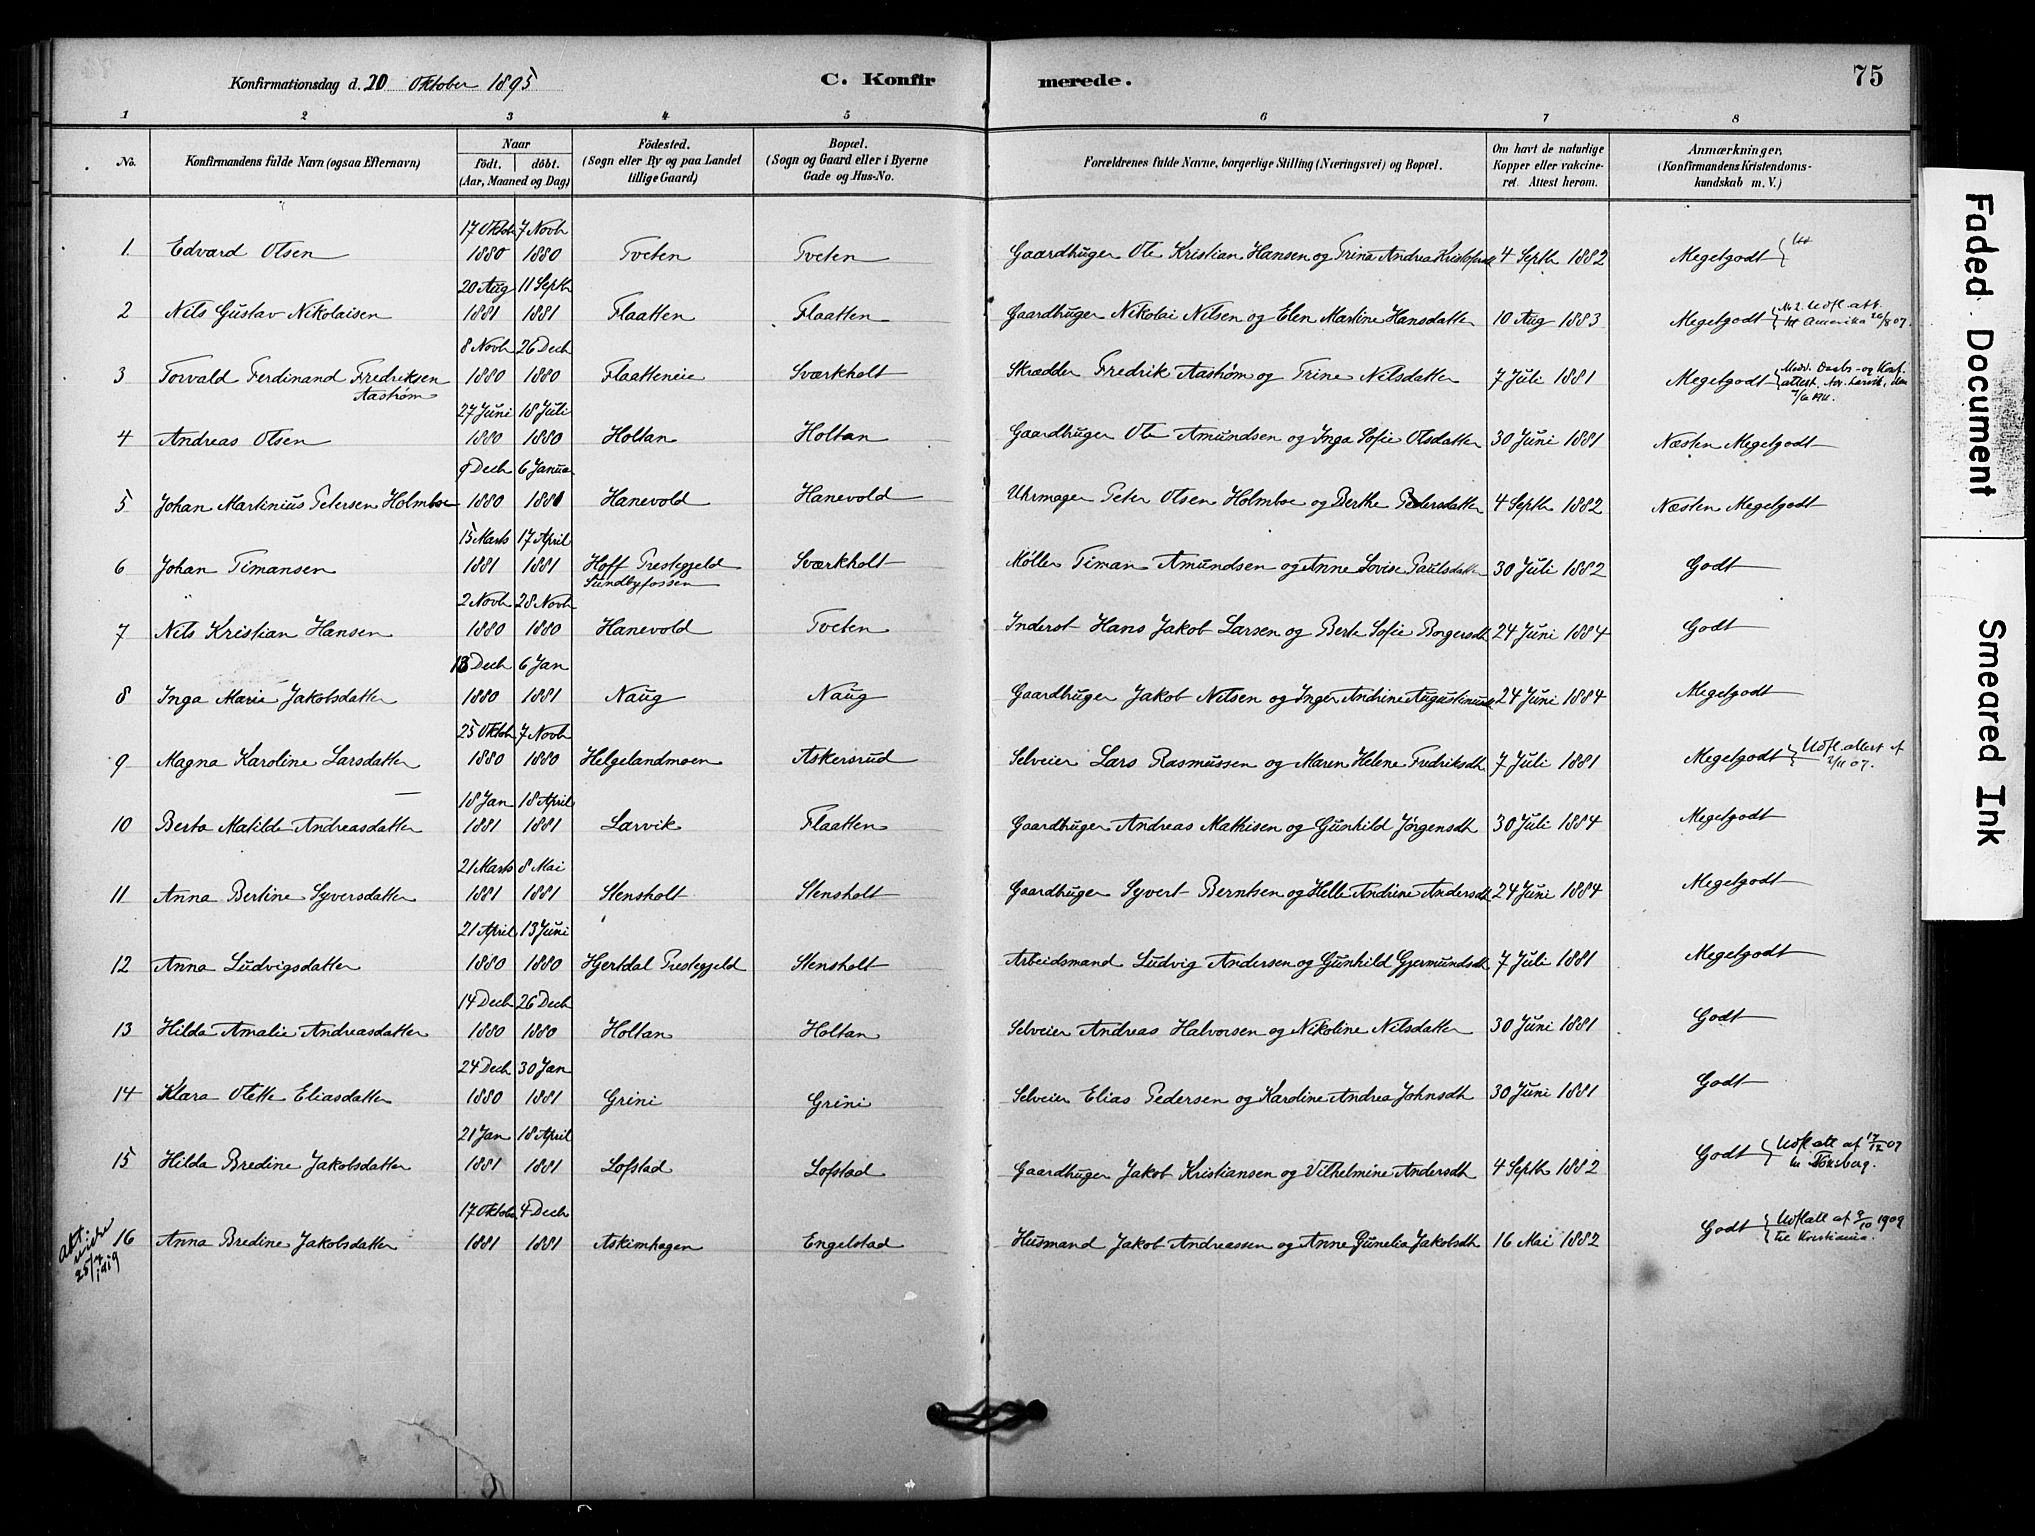 Konfirmationsdag d. 20 Oktober 1895 C. Konfirmerede. 75
1 2 3 4 5 6 7 8
No. Konfirmandens fulde Navn (ogsaa Efternavn) Naar födt. döbt. (Aar, Maaned og Dag) Födested. (Sogn eller By og paa Landet tillige Gaard) Bopæl. (Sogn og Gaard eller i Byerne Gade og Hus-No. Forældrenes fulde Navne, borgerlige Stilling (Næringsvei) og Bopæl. Om havt de naturlige Kopper eller vakcineret. Attest herom. Anmærkninger, (Konfirmandens Kristendomskundskab m. V.)
17 Oktob 7 Novb
1. Edvard Olsen 1880 1880 Tveten Tveten Gaardbruger Ole Kristian Hansen og Trina Andrea 4 Septb 1882 Megetgodt
20 Aug 11 Septb
2 Nils Gustav Nikolaisen 1881 1881 Flaatten Flaatten Gaardbruger Nikolai Nilsen og Elen Martine Hansdatter 10 Aug 1883 Megetgodt { No 2. Udfl. att. til Amerika 20/8 07.
8 Novb 26 Decb
3 Torvald Ferdinand Fredriksen Aastrøm 1880 1880 Flaatteneie Sværkholt Skrædder Fredrik Aastrøm og Trine Nilsdatter 7 Juli 1881 Megetgodt { Medd. Daabs- og Konf. attest.
27 Juni 18 Juli
4 Andreas Olsen 1880 1880 Holtan Holtan Gaardbruger Ole Amundsen og Inga Sofie Olsdatter 30 Juni 1881 Næsten Megetgodt
9 Decb 6 Janua
5 Johan Martinius Petersen Holmboe 1880 1881 Hanevold Hanevold Uhrmager Peter Olsen Holmboe og Berthe Pedersdatter 4 Septb 1882 Næsten Megetgodt
15 Marts 17 April
6 Johan Timansen 1881 1881 Hoff Prestegjeld Sundbyfossen Sværkholt Møller Timan Amundsen og Anne Lovise Paulsdatter 30 Juli 1882 Godt
2 Novb 28 Novb
7 Nils Kristian Hansen 1880 1880 Hanevold Tveten Inderst Hans Jakob Larsen og Berte Sofie Borgersdt 24 Juni 1884 Godt
13 Decb 6 Jan
8 Inga Marie Jakobsdatter 1880 1881 Naug Naug Gaardbruger Jakob Nilsen og Inger Andrine 24 Juni 1884 Megetgodt
25 Oktob 7 Novb
9 Magna Karoline Larsdatter 1880 1880 Helgelandmoen Askersrud Selveier Lars Rasmussen og Maren Helene Fredriksdt 7 Juli 1881 Megetgodt { Udfl. attest af 2/11 07.
18 Jan 18 April
10 Berta Matilde Andreasdatter 1881 1881 Larvik Flaatten Gaardbruger Andreas Mathisen og Gunhild Jörgensdt 30 Juli 1884 Megetgodt
21 Marts 8 Mai
11 Anna Bertine Syversdatter 1881 1881 Stensholt Stensholt Gaardbruger Syvert Berntsen og Helle Andrine Andersdt 24 Juni 1884 Megetgodt
21 April 13 Juni
12 Anna Ludvigsdatter 1880 1880 Hjertdal Prestegjeld Stensholt Arbeidsmand Ludvig Andersen og Gunhild Gjermundsdt 7 Juli 1881 Megetgodt
14 Decb 26 Decb
13 Hilda Amalie Andreasdatter 1880 1880 Holtan Holtan Selveier Andreas Halvorsen og Nikoline Nilsdatter 30 Juni 1881 Godt
24 Decb 30 Jan
14 Klara Olette Eliasdatter 1880 1881 Grini Grini Selveier Elias Pedersen og Karoline Andrea Johnsdt 30 Juni 1881 Godt
21 Jan 18 April
15 Hilda Bredine Jakobsdatter 1881 1881 Lofstad Lofstad Gaardbruger Jakob Kristiansen og Vilhelmine Andersdt 4 Septb 1882 Godt { Udfl att af 17/12 07 til Tönsberg.
17 Oktobr 4 Decb
16 Anna Bredine Jakobsdatter 1881 1881 Askimhagen Engelstad Husmand Jakob Andreassen og Anne Gunelia Jakobsdt 16 Mai 1882 Godt { Udfl att af 9/10 1909 til Kristiania.
Faded Document
Smeared Ink